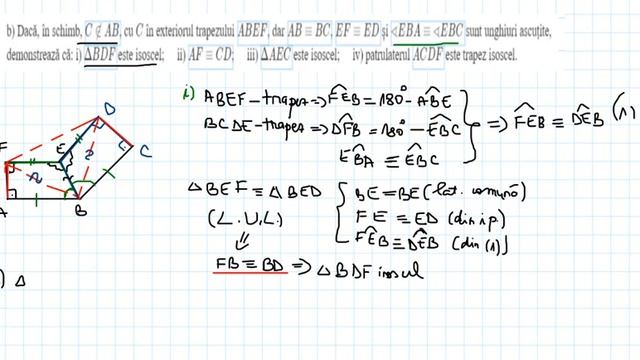 b) Dacă, în schimb, C ∉ AB, cu C în exteriorul trapezului ABEF, dar AB ≡ BC, EF ≡ ED și ∢EBA ≡ ∢EBC sunt unghiuri ascuțite,
demonstrează că: i) ΔBDF este isoscel; ii) AF ≡ CD; iii) ΔAEC este isoscel; iv) patrulaterul ACDF este trapez isoscel.
i) ABEF – trapez ⇒ F̂EB = 180° – ÂBE
BCDE – trapez ⇒ D̂FB = 180° – ÊBC
ÊBA ≡ ÊBC
⇒ F̂EB ≡ D̂EB (1)
D
C
F
E
A
B
△BEF ≡ △BED
(L.U.L.)
BE = BE (lat. comună)
FE ≡ ED (din ip.)
F̂EB ≡ D̂EB (din (1))
⇓
FB ≡ BD ⇒ △BDF isoscel
) △